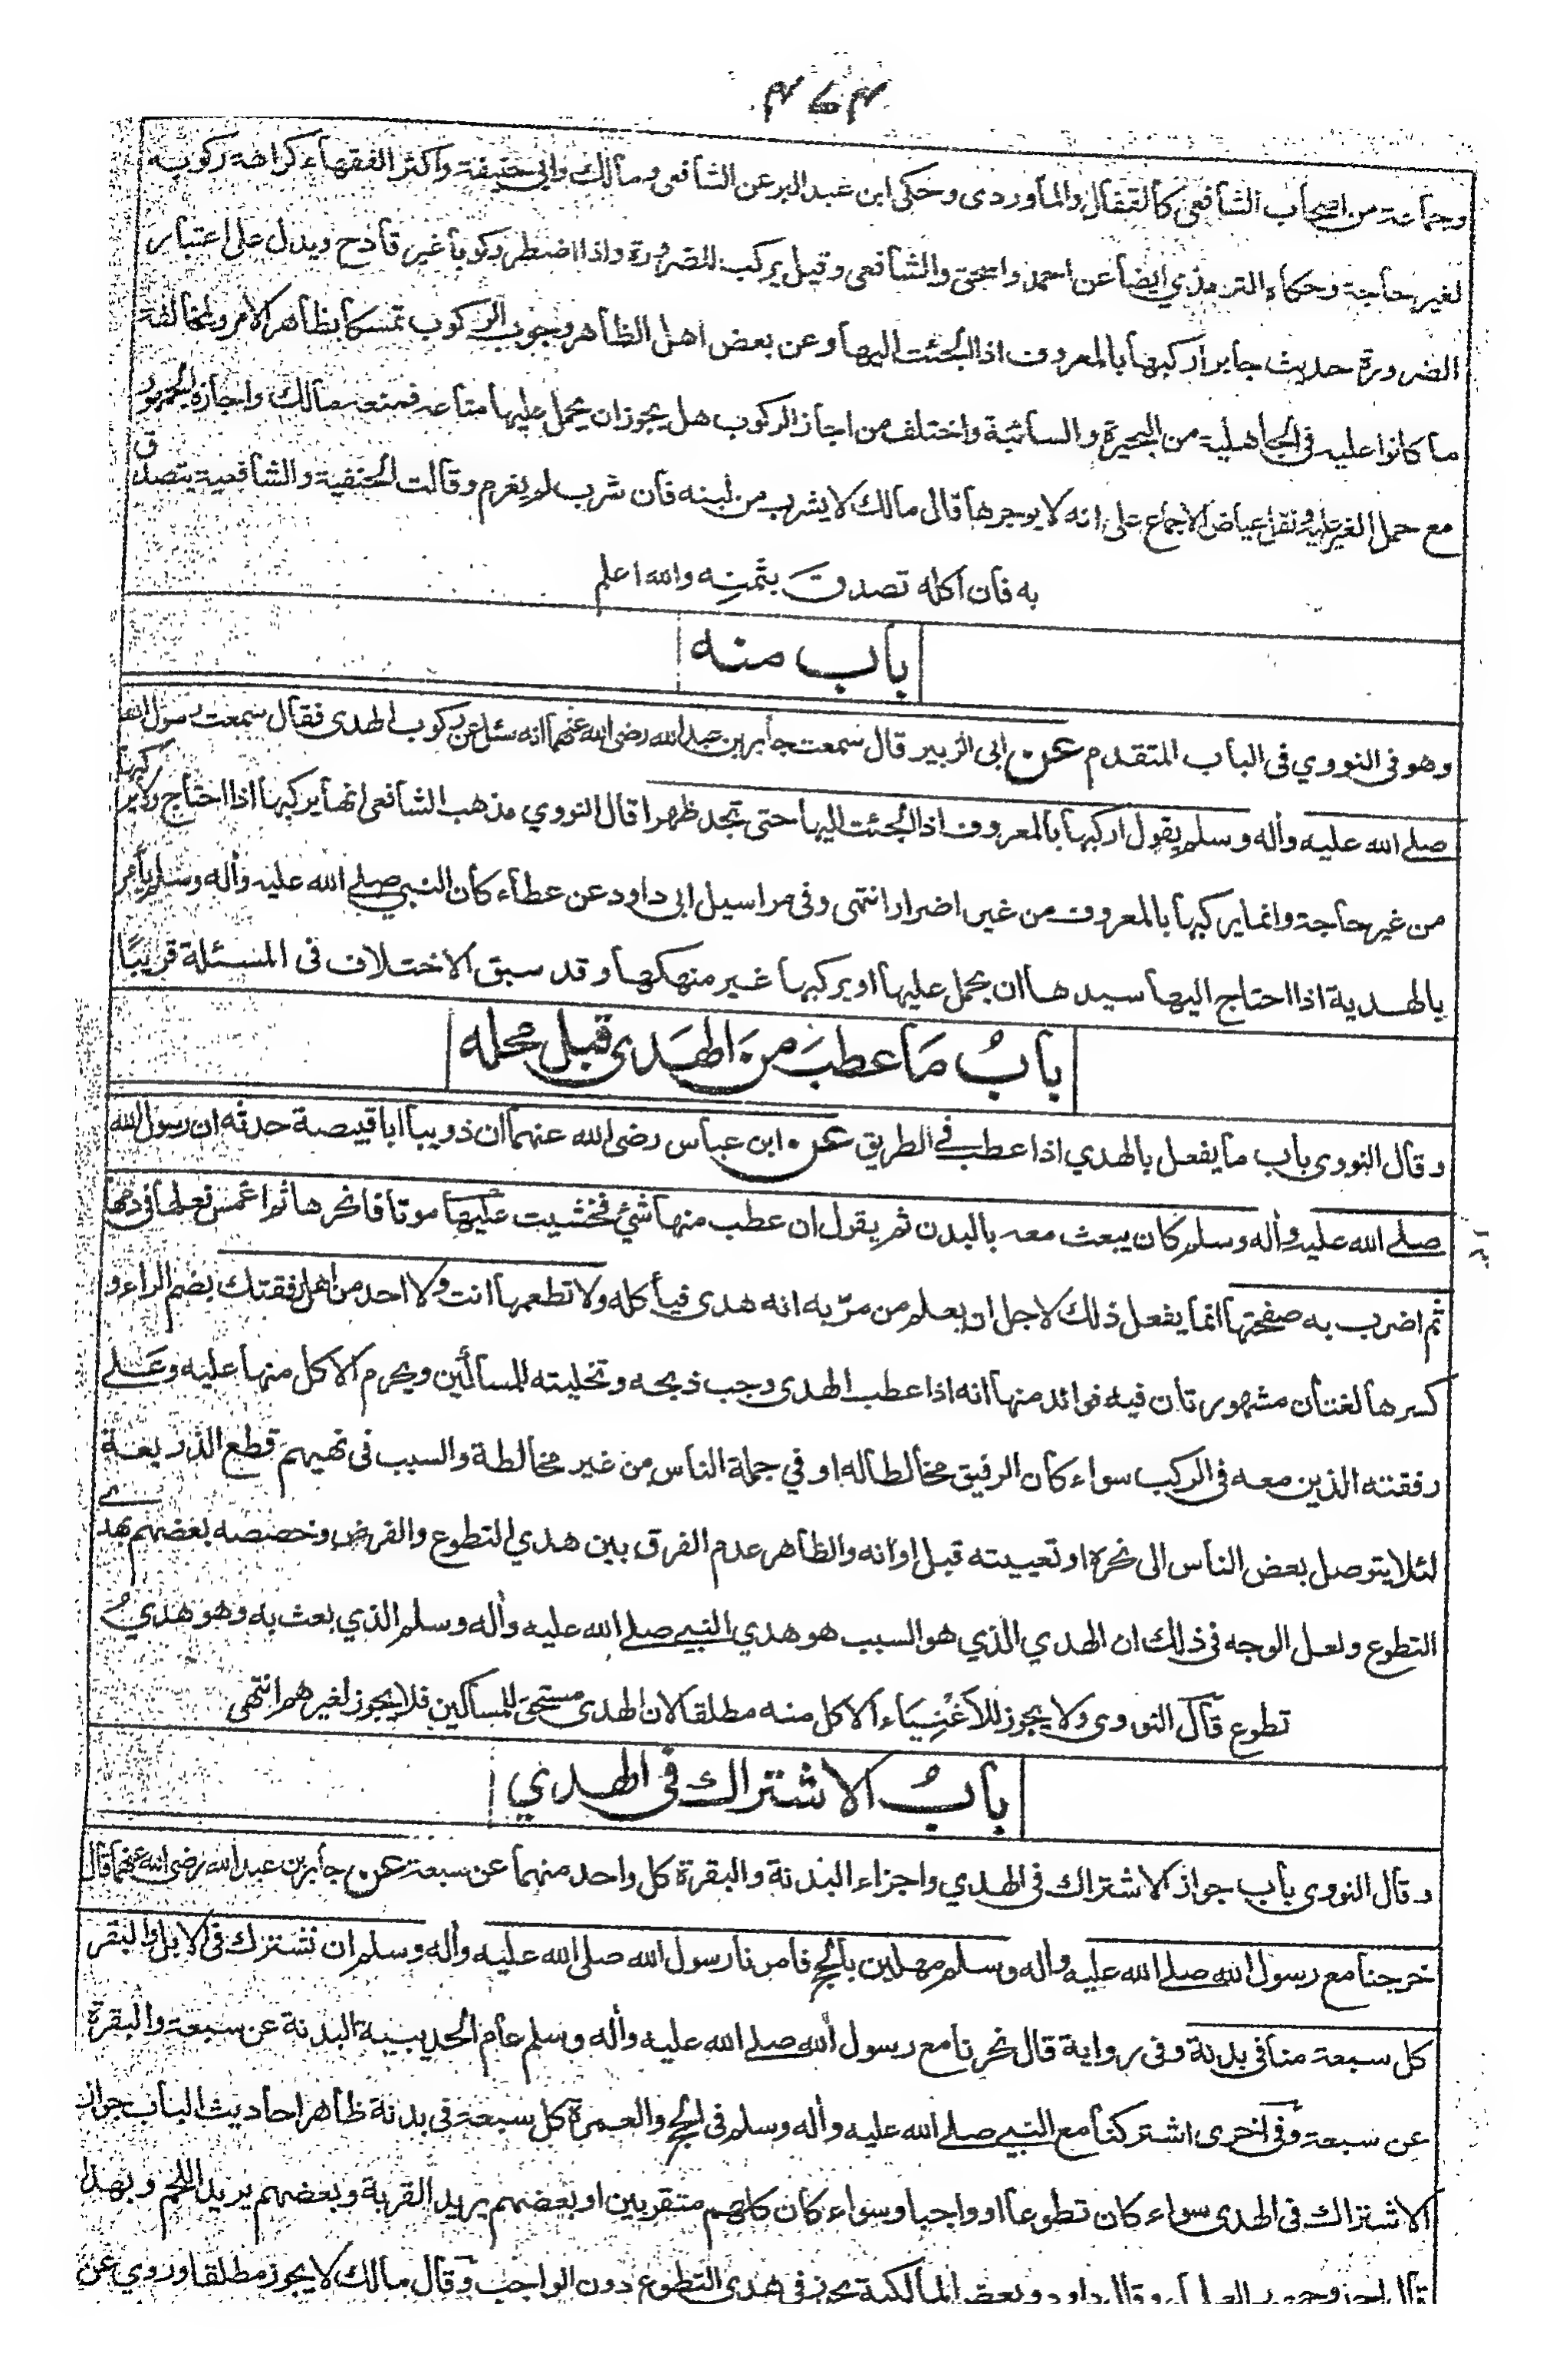 ٤٧٤
وجماعة من اصحاب الشافعي كالقفال والماوردى وحكى ابن عبد البر عن الشافعى ومالك وابي حنيفة واكثر الفقهاء كراهة ركوبه
لغير حاجة وحكاه الترمذي ايضا عن احمد واسحق والشافعى وقيل يركب للضرورة واذا اضطر ركوبا غير قادح ويدل على اعتبار
الضرورة حديث جابر اركبها بالمعروف اذا الجئت اليها وعن بعض اهل الظاهر وجوب الركوب تمسكا بظاهر الامر ولمخالفة
ما كانوا عليه فى الجاهلية من البحيرة والسائبة واختلف من اجاز الركوب هل يجوز ان يحمل عليها متاعه فمنعه مالك واجازه الجمهور
مع حمل الغير عليه ونقل عياض الاجماع على انه لا يوجرها قال مالك لا يشرب من لبنه فان شرب لم يغرم وقالت الحنفية والشافعية يتصدق
به فان اكله تصدق بثمنه والله اعلم
باب منه
وهو فى النووي فى الباب المتقدم عن ابى الزبير قال سمعت جابر بن عبد الله رضى الله عنهما انه سئل عن ركوب الهدى فقال سمعت رسول الله
صلے الله عليه وأله وسلم يقول اركبها بالمعروف اذا الجئت اليها حتى تجد ظهرا قال النووي مذهب الشافعى انه يركبها اذا احتاج ولا يركبها
من غير حاجة وانما يركبها بالمعروف من غير اضرار انتهى وفى مراسيل ابى داود عن عطاء كان النبي صلے الله عليه وأله وسلم يأمر
بالهدية اذا احتاج اليها سيدها ان يحمل عليها او يركبها غير منهكها وقد سبق الاختلاف فى المسئلة قريبًا
بابُ مَا عطبَ منَ الهَدى قبل محله
وقال النووى باب ما يفعل بالهدي اذا عطب فے الطريق عن ابن عباس رضى الله عنهما ان ذويبا ابا قبيصة حدثه ان رسول الله
صلے الله عليه وأله وسلم كان يبعث معه بالبدن ثم يقول ان عطب منها شئ فخشيت عليها موتا فانحرها ثم اغمس نعلها فى دمها
ثم اضرب به صفحتها انما يفعل ذلك لاجل ان يعلم من مرّ به انه هدى فيأكله ولا تطعمها انت ولا احد من اهل رفقتك بضم الراء و
كسرها لغتان مشهورتان فيه فوائد منها انه اذا عطب الهدى وجب ذبحه وتخليته للمساكين ويحرم الاكل منها عليه وعلے
رفقته الذين معه فى الركب سواء كان الرفيق مخالطا له او في جملة الناس من غير مخالطة والسبب فى نهيهم قطع الذريعة
لئلا يتوصل بعض الناس الى نحره او تعييبه قبل اوانه والظاهر عدم الفرق بين هدي التطوع والفرض وخصصه بعضهم بهدے
التطوع ولعل الوجه فى ذلك ان الهدي الذي هو السبب هو هدي النبي صلے الله عليه وأله وسلم الذي بعث به وهو هديُ
تطوع قال النووى ولا يجوز للاغنياء الاكل منه مطلقا لان الهدى مستحق للمساكين فلا يجوز لغيرهم انتهى
بابُ الاشتراك فى الهدي
وقال النووى باب جواز الاشتراك فى الهدي واجزاء البدنة والبقرة كل واحد منهما عن سبعة عن جابر بن عبد الله رضى الله عنهما قال
خرجنا مع رسول الله صلے الله عليه وأله وسلم مهلين بالحج فامرنا رسول الله صلى الله عليه وأله وسلم ان نشترك فى الابل والبقر
كل سبعة منا فى بدنة وفى رواية قال نحرنا مع رسول الله صلے الله عليه وأله وسلم عام الحديبية البدنة عن سبعة والبقرة
عن سبعة وفى اخرى اشتركنا مع النبي صلے الله عليه وأله وسلم فى الحج والعمرة كل سبعة فى بدنة ظاهر احاديث الباب جواز
الاشتراك فى الهدى سواء كان تطوعا او واجبا وسواء كان كلهم متقربين او بعضهم يريد القربة وبعضهم يريد اللحم وبهذا
قال احمد وجمهور العلماء وقال داود وبعض المالكية يجوز فى هدى التطوع دون الواجب وقال مالك لا يجوز مطلقا وروي عن